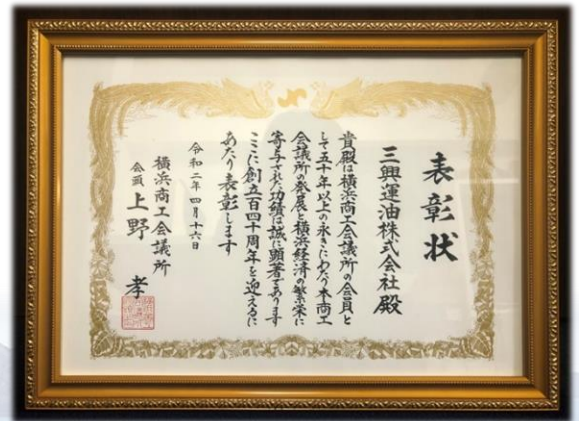 表彰状
三興運油株式会社殿
貴殿は横浜商工会議所の会員と
して五十年以上の永きにわたり本商工
会議所の発展と横浜経済の繁栄に
寄与された功績は誠に顕著であります
ここに創立百四十周年を迎えるに
あたり表彰します
令和二年四月十六日
横浜商工会議所
会頭 上野 孝